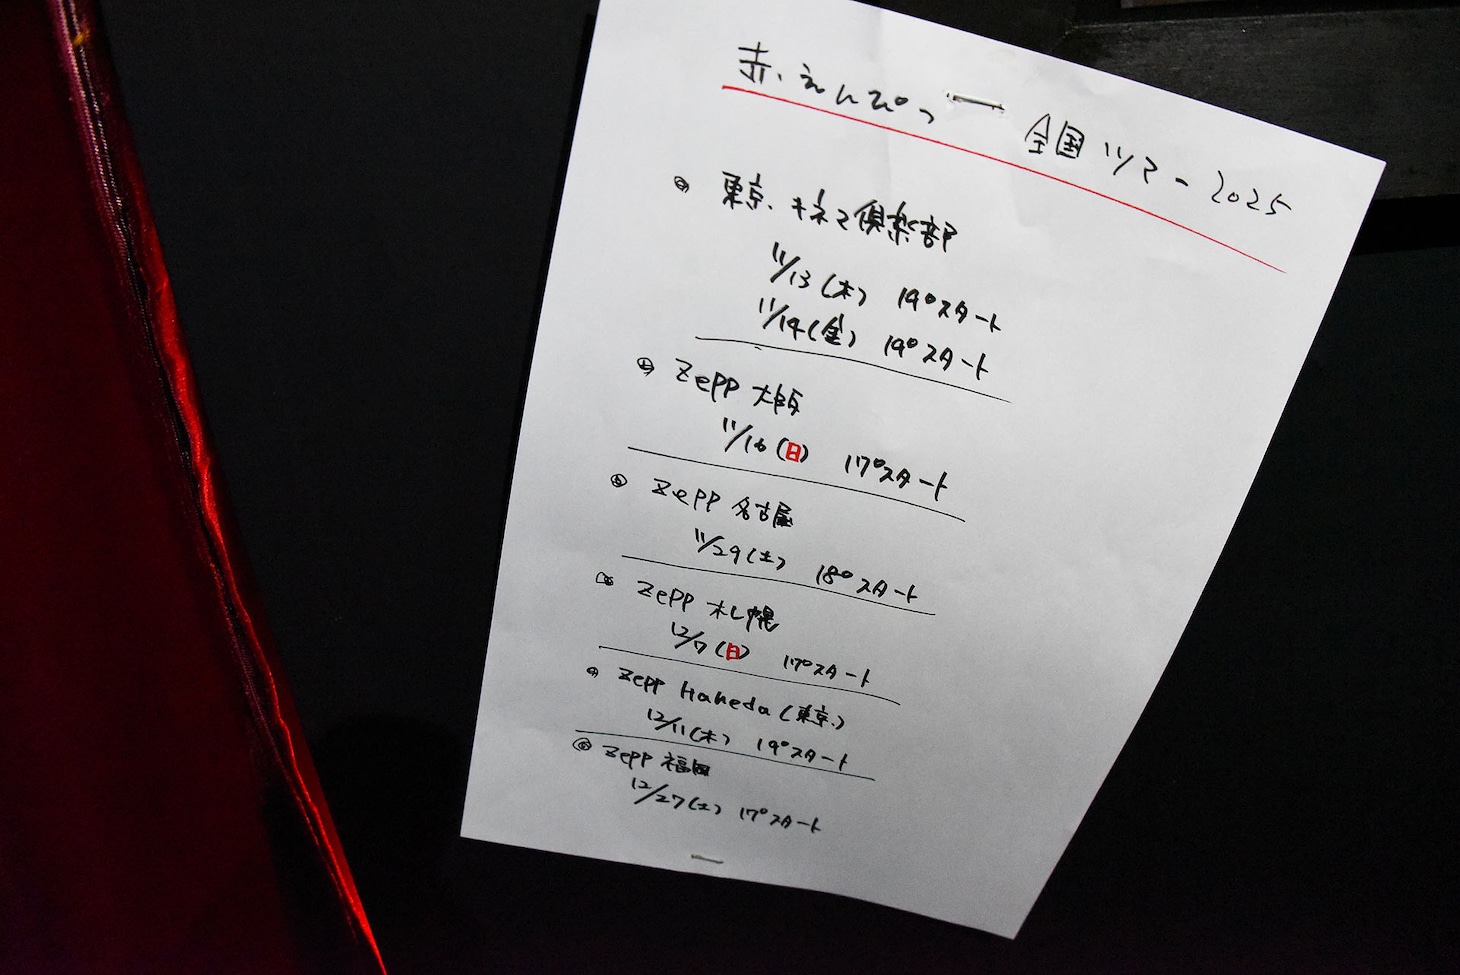 赤いえんぴつ 全国ツアー 2025
東京 キネマ倶楽部
11/13(木) 19°スタート
11/14(金) 19°スタート
Zepp 大阪
11/16(日) 17°スタート
Zepp 名古屋
11/29(土) 18°スタート
Zepp 札幌
12/7(日) 17°スタート
Zepp Haneda(東京)
12/11(木) 19°スタート
Zepp 福岡
12/27(土) 17°スタート